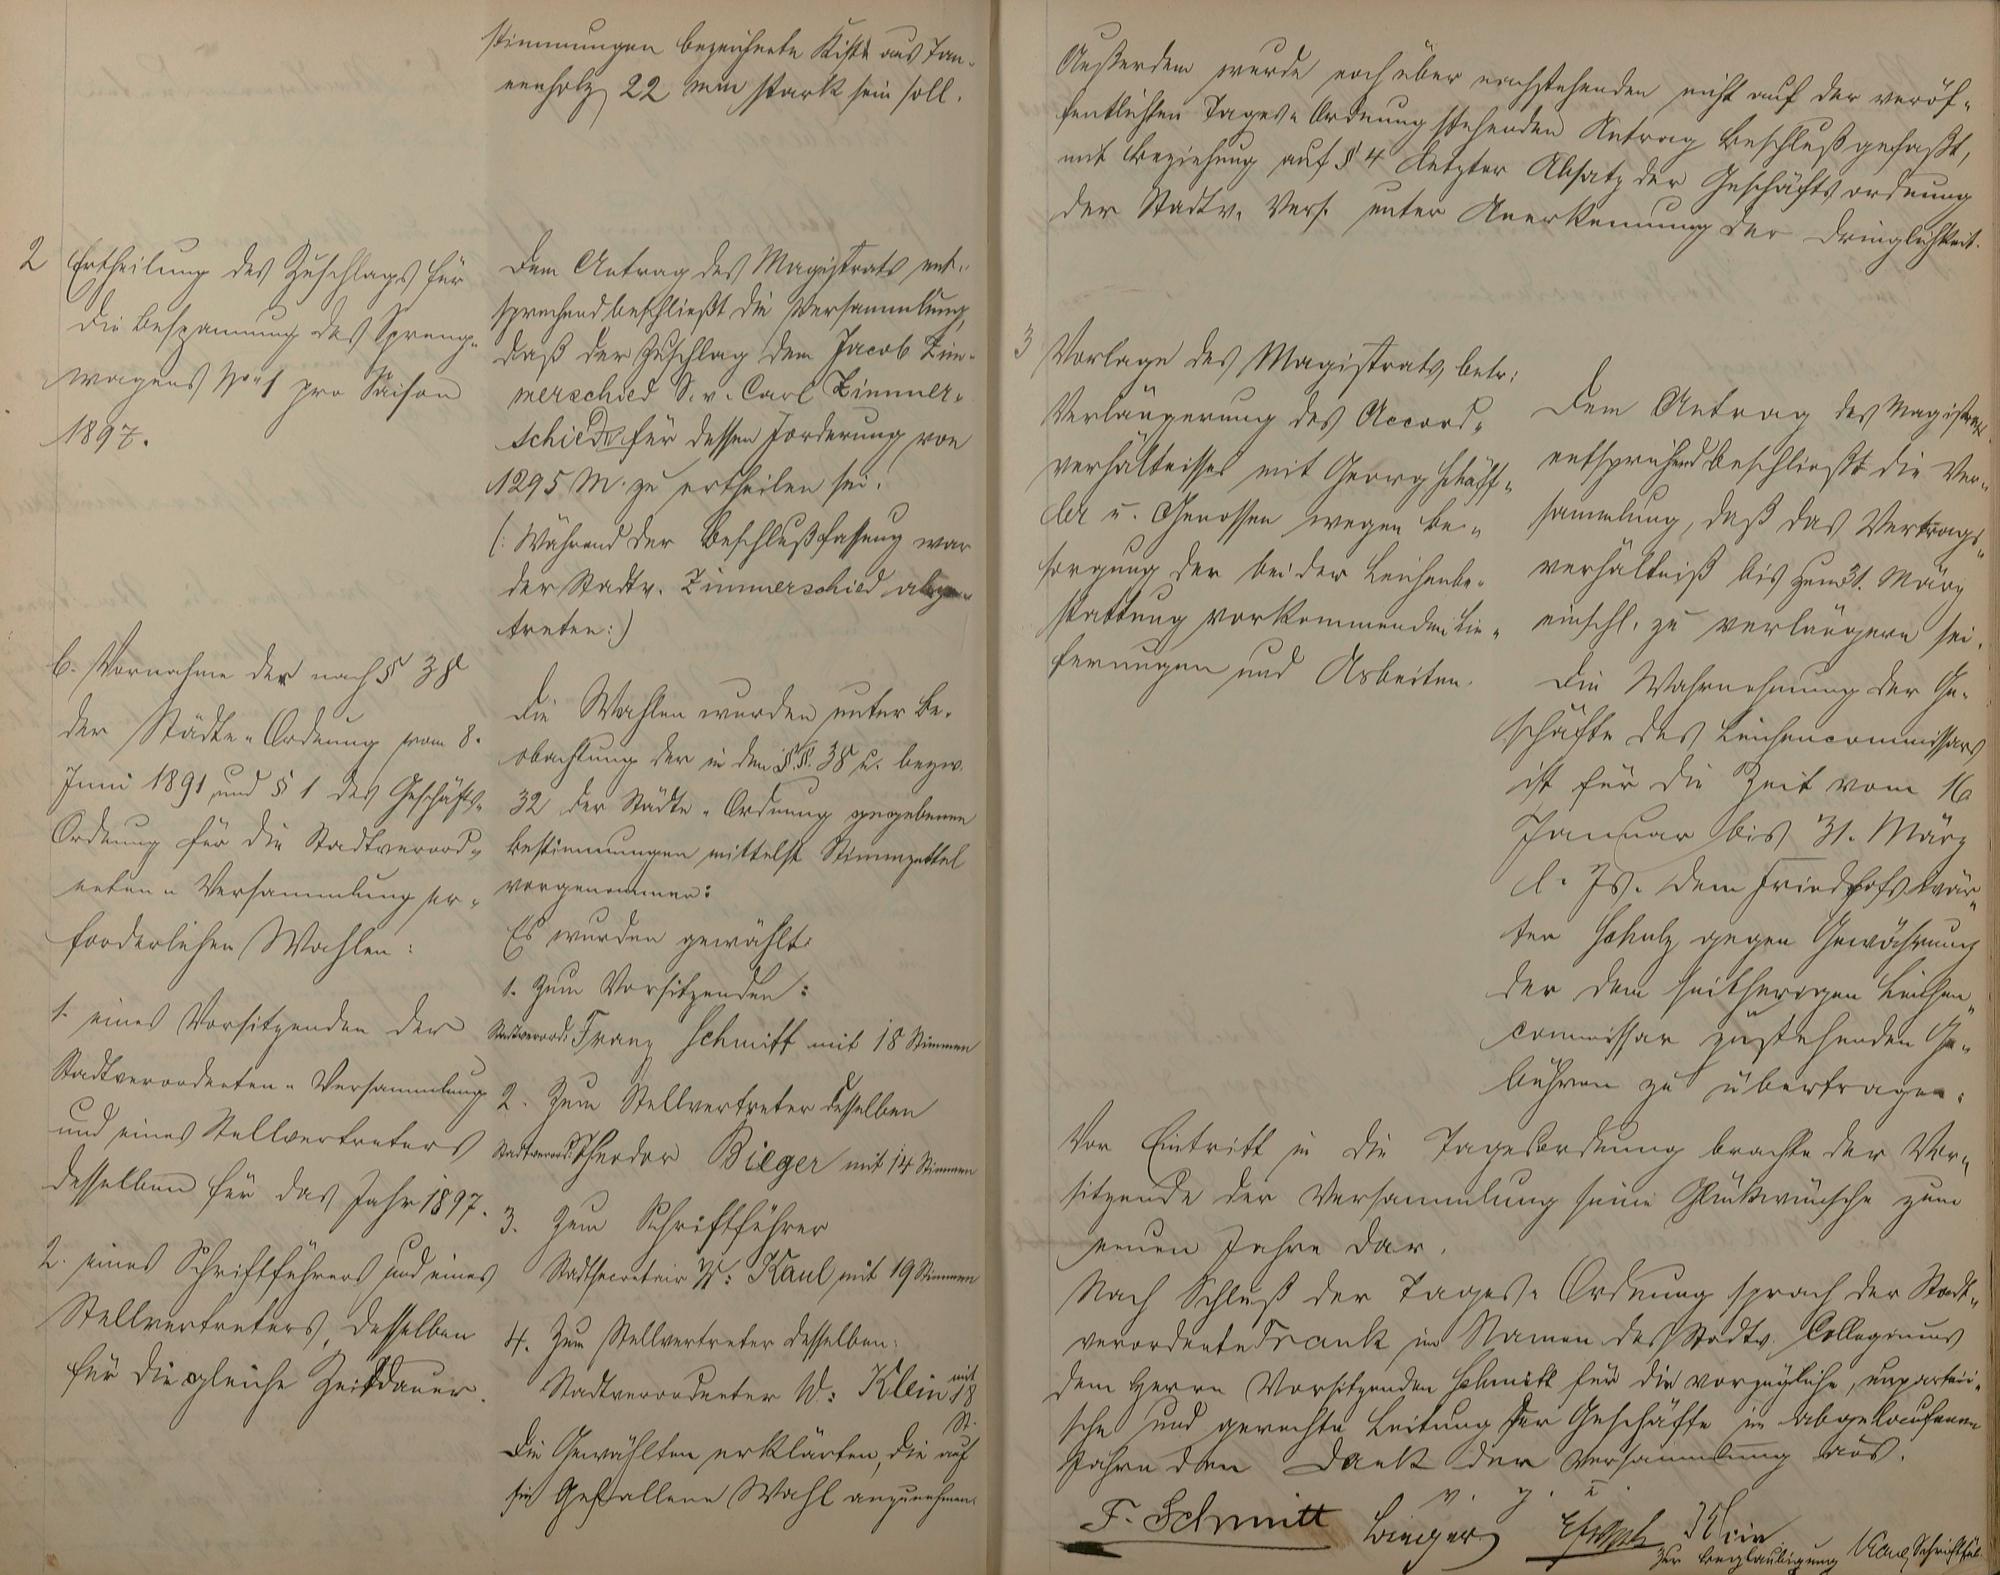 stimmungen bezeichnete Kiste aus Tan-
nenholz 22 mm stark sein soll.
2 Ertheilung des Zuschlags für
die Bespannung des Spreng-
wagens No 1 pro Saison
1897.
Dem Antrag des Magistrats ent-
sprechend beschließt die Versammlung,
daß der Zuschlag dem Jacob Zim-
merschied S. v. Carl Zimmer-
schied für dessen Forderung von
1295 M. zu ertheilen sei.
(: Während der Beschlußfassung war
der Stadtv. Zimmerschied abge-
treten :)
b. Vornahme der nach § 38
der Städte-Ordnung vom 8.
Juni 1891 und § 1 des Geschäfts-
Ordnung für die Stadtverord-
neten-Versammlung er-
forderlichen Wahlen:
1. eines Vorsitzenden der
Stadtverordneten-Versammlung
und eines Stellvertreters
desselben für das Jahr 1897.
2. eines Schriftführers und eines
Stellvertreters desselben
für die gleiche Zeitdauer.
Die Wahlen wurden unter Be-
obachtung der in den §§. 38 u. bezw.
32 der Städte-Ordnung gegebenen
Bestimmungen mittelst Stimmzettel
vorgenommen:
Es wurden gewählt:
1. Zum Vorsitzenden:
Stadtverord. Franz Schmitt mit 18 Stimmen
2. Zum Stellvertreter desselben
Stadtverord. Theodor Bieger mit 14 Stimmen
3. Zum Schriftführer
Stadtsecretair W: Kaul mit 19 Stimmen
4. Zum Stellvertreter desselben:
Stadtverordneter W: Klein mit 18
St.
Die Gewählten erklärten, die auf
sie Gefallene Wahl anzunehmen.
Außerdem wurde noch über nachstehenden nicht auf der veröf-
fentlichten Tages-Ordnung stehenden Antrag Beschluß gefaßt,
mit Beziehung auf § 4 letzter Absatz der Geschäftsordnung
der Stadtv. Vers. unter Anerkennung der Dringlichkeit.
3 Vorlage des Magistrats, betr:
Verlängerung des Accord-
verhältnisses mit Georg Schäff-
ler u. Genossen wegen Be-
sorgung der bei der Leichenbe-
stattung vorkommenden Lie-
ferungen und Arbeiten.
Dem Antrag des Magistrats
entsprechend beschließt die Ver-
sammlung, daß das Vertrags-
verhältniß bis zum 31. März
einschl. zu verlängern sei.
Die Wahrnehmung der Ge-
schäfte des Leichencommissars
ist für die Zeit vom 16
Januar bis 31. März
l. Js. dem Friedhofswär-
ter Schulz gegen Gewährung
der dem seitherigen Leichen-
commissar zustehenden Ge-
bühren zu übertragen.
Vor Eintritt in die Tagesordnung brachte der Vor-
sitzende der Versammlung seine Glückwünsche zum
neuen Jahre dar.
Nach Schluß der Tages-Ordnung sprach der Stadt-
verordnete Frank im Namen des Stadtv. Collegiums
dem Herrn Vorsitzenden Schmitt für die vorzügliche, unpartei-
sche und gerechte Leitung der Geschäfte im abgelaufenen
Jahre den Dank der Versammlung aus.
v. g. u.
F. Schmitt Bieger Klein
Zur Beglaubigung Kaul, Schriftfüh.